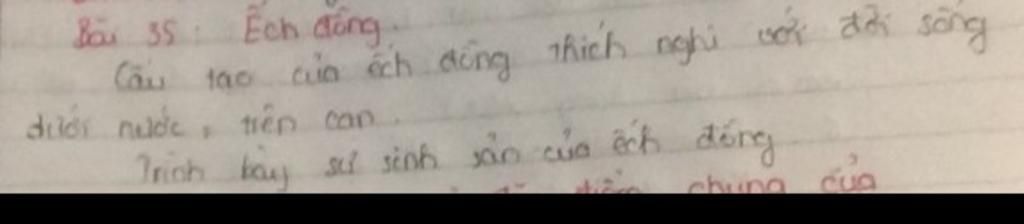 Bài 35: Ếch đồng.
Cấu tạo của ếch đồng thích nghi với đời sống
dưới nước, trên cạn.
Trình bày sự sinh sản của ếch đồng
điểm chung của